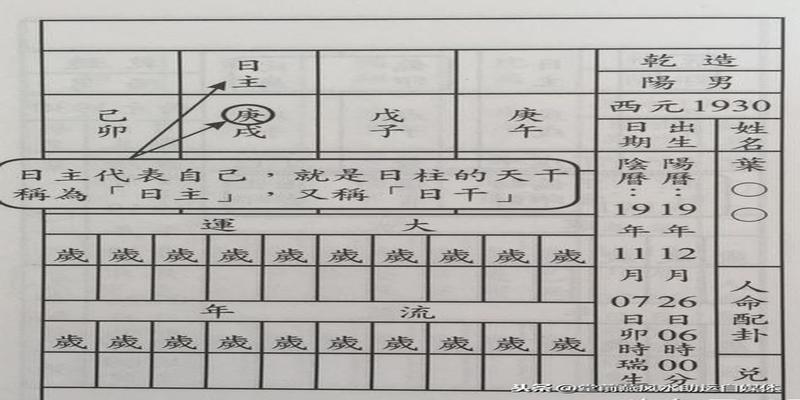 乾造
陽男
西元1930
姓名
葉○○
人命配卦
兌
出生日期
陽曆:19年12月26日06時00分
陰曆:19年11月07日卯時瑞生
日主
庚午
戊子
庚戌
己卯
日主代表自己,就是日柱的天干
稱為「日主」,又稱「日干」
大運
歲 歲 歲 歲 歲 歲 歲 歲 歲 歲
流年
歲 歲 歲 歲 歲 歲 歲 歲 歲 歲